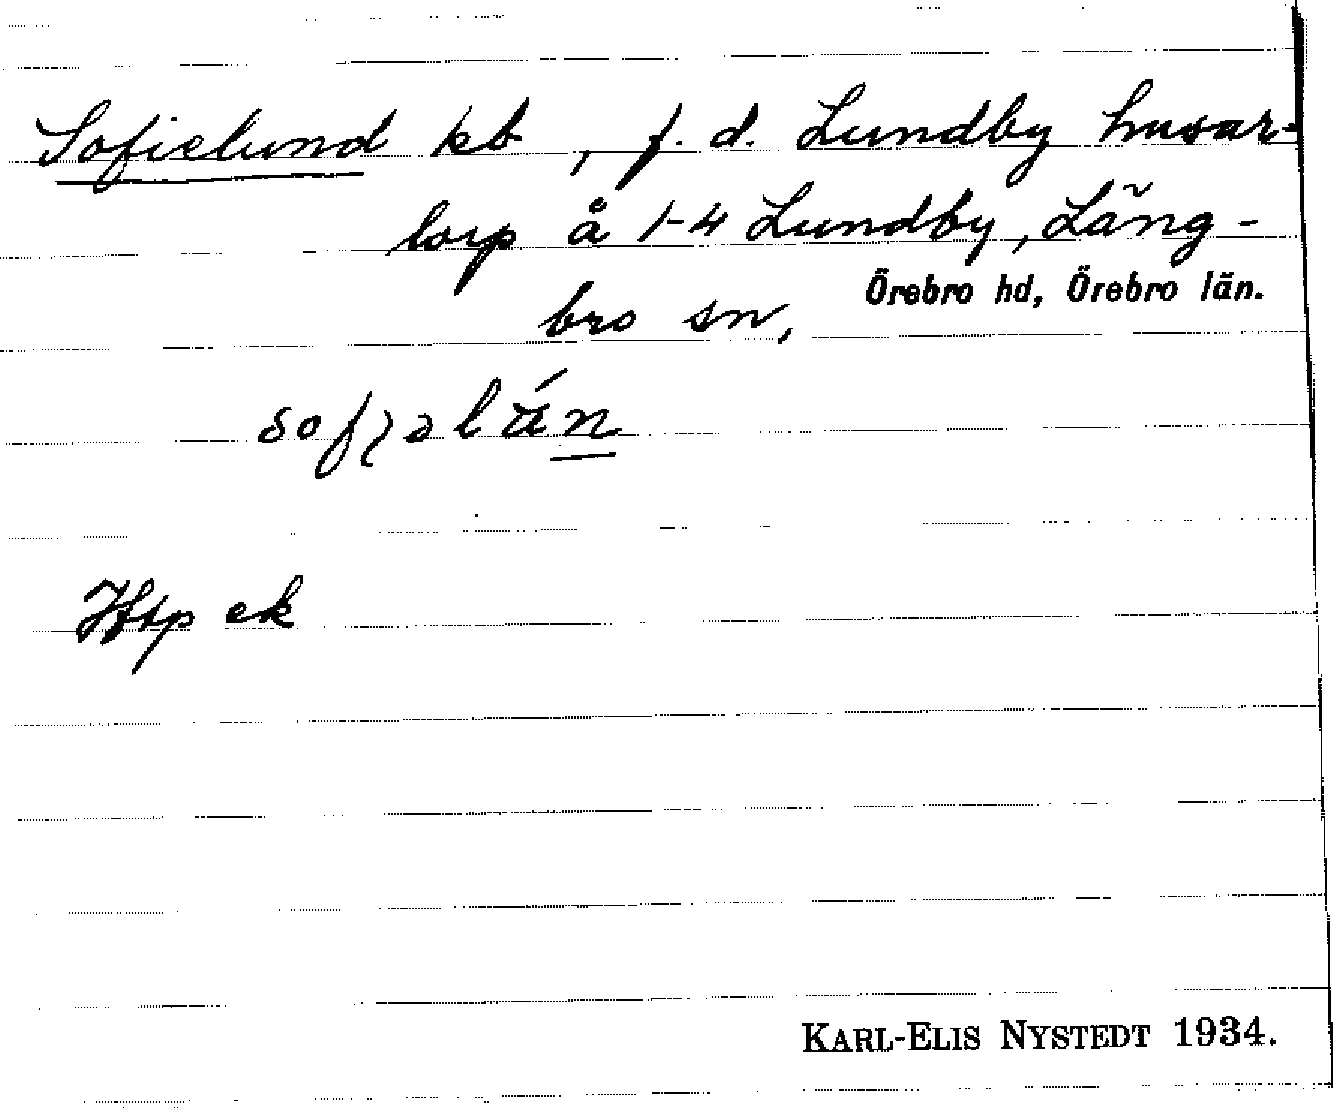 Sofielund kb, f. d. Lundby husar-
torp å 1-4 Lundby, Läng-
bro sn, Örebro hd, Örebro län.
Htp ek
KARL-ELIS NYSTEDT 1934.